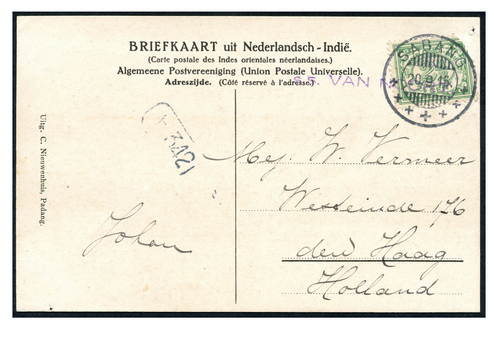 BRIEFKAART uit Nederlandsch-Indië.
(Carte postale des Indes orientales néerlandaises.)
Algemeene Postvereeniging (Union Postale Universelle).
Adreszijde. (Côté réservé à l'adresse.)
S.S. VAN
SABANG
Uitg. C. Nieuwenhuis, Padang.
Mej. W. Vermeer
Westeinde 176
den Haag
Holland
Johan